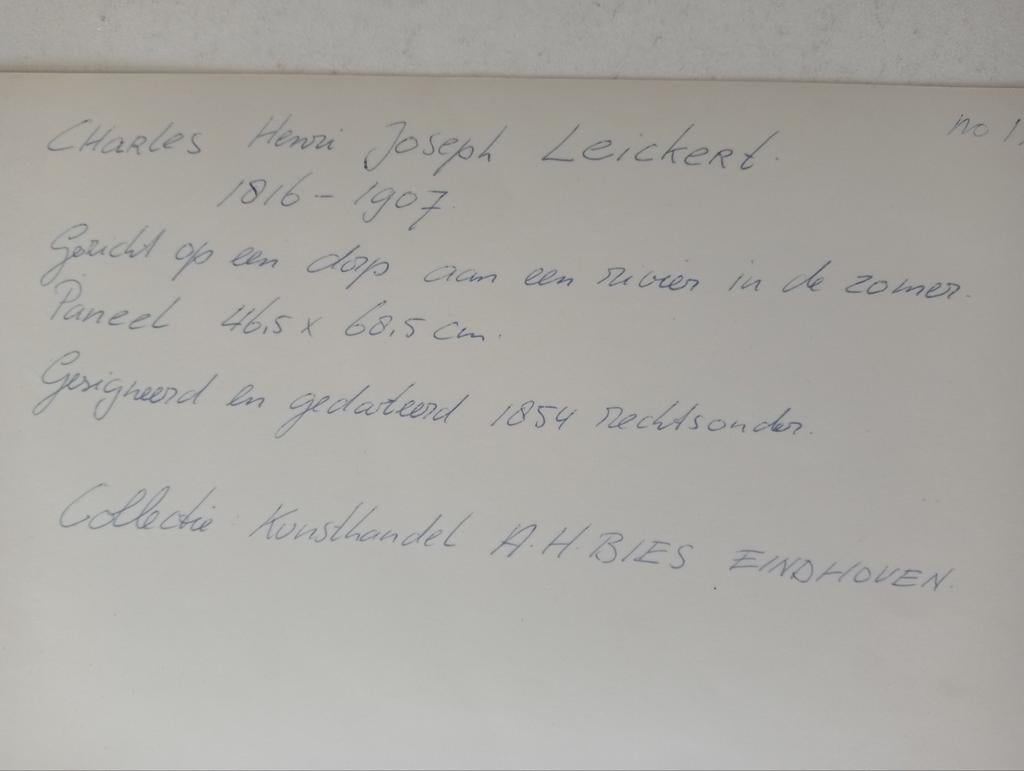 no 1,
CHARLES Henri Joseph Leickert.
1816 - 1907.
Gezicht op een dorp aan een rivier in de zomer.
Paneel 46,5 x 68,5 cm.
Gesigneerd en gedateerd 1854 rechtsonder.
Collectie Kunsthandel A.H. BIES EINDHOVEN.